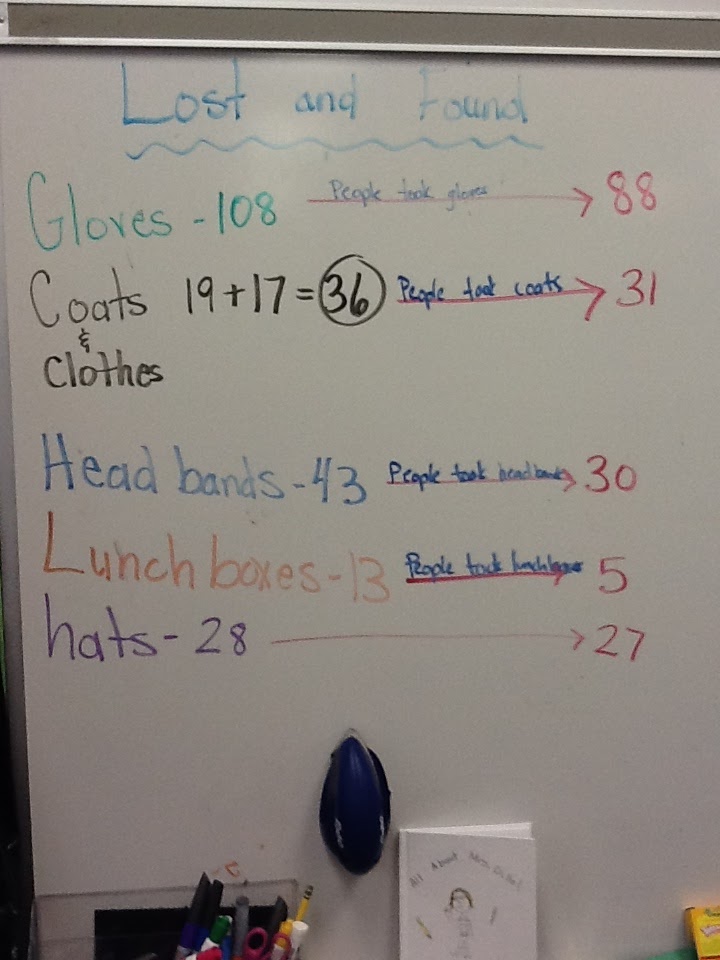 Lost and Found
Gloves - 108 People took gloves → 88
Coats 19 + 17 = 36 People took coats → 31
&
Clothes
Head bands - 43 People took headbands → 30
Lunch boxes - 13 People took lunchboxes → 5
hats - 28 → 27
All About Mrs.